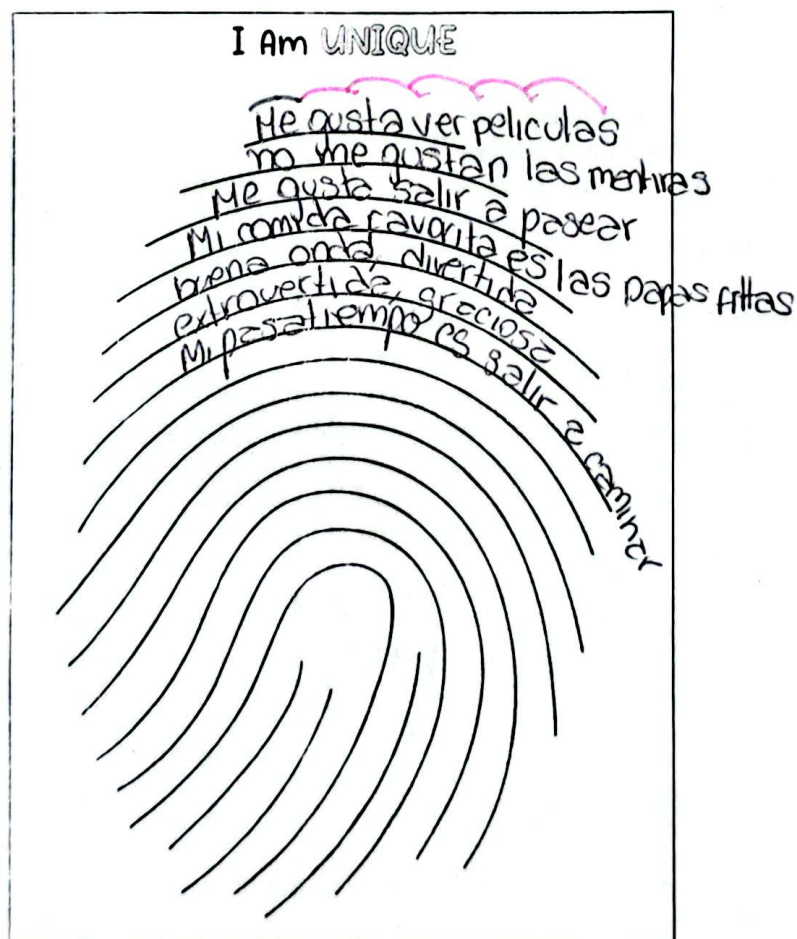 I Am UNIQUE
Me gusta ver peliculas
no me gustan las mentiras
Me gusta salir a pasear
Mi comida favorita es las papas fritas
buena onda, divertida
extrovertida, graciosa
Mi pasatiempo es salir a caminar